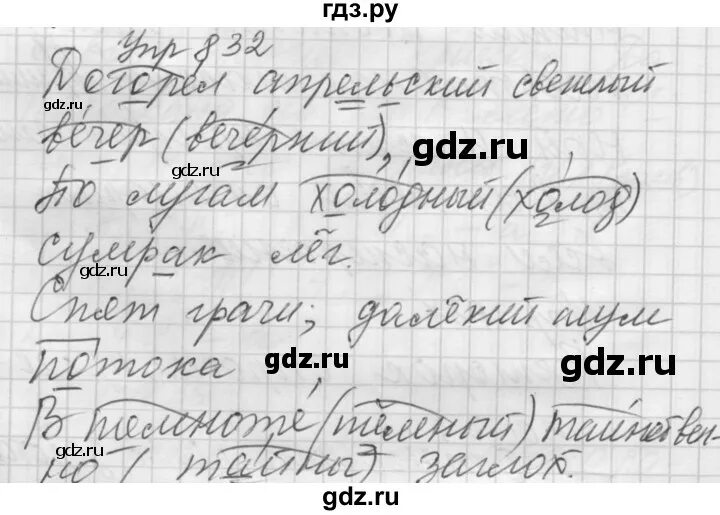 гдз.ру
Упр 832
Догорел апрельский светлый
вечер (вечерний),
gdz.ru
gdz.ru
По лугам холодный (холод)
сумрак лёг.
gdz.ru
Спят грачи; далёкий шум
потока
gdz.ru
gdz.ru
В темноте (тёмный) таинствен-
но (тайны) заглох.
gdz.ru
gdz.ru